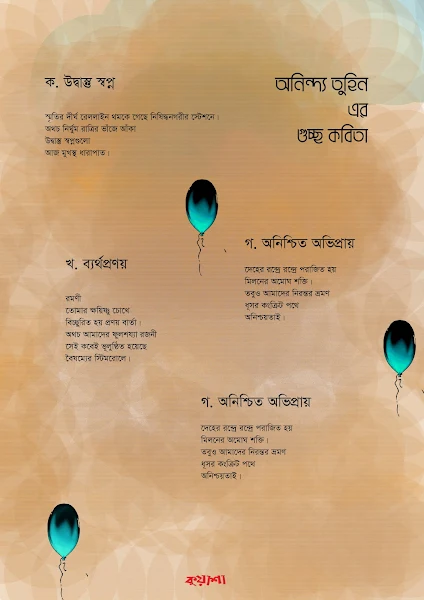 অনিন্দ্য তুহিন
এর
গুচ্ছ কবিতা
ক. উদ্বাস্তু স্বপ্ন
স্মৃতির দীর্ঘ রেললাইন থমকে গেছে নিষিদ্ধনগরীর স্টেশনে।
অথচ নির্ঘুম রাত্রির ভাঁজে আঁকা
উদ্বাস্তু স্বপ্নগুলো
আজ মুখস্থ ধারাপাত।
খ. ব্যর্থপ্রণয়
রমণী
তোমার ক্ষয়িষ্ণু চোখে
বিচ্ছুরিত হয় প্রণয় বার্তা।
অথচ আমাদের ফুলশয্যা রজনী
সেই কবেই ভূলুণ্ঠিত হয়েছে
বৈষম্যের স্টিমরোলে।
গ. অনিশ্চিত অভিপ্রায়
দেহের রন্ধ্রে রন্ধ্রে পরাজিত হয়
মিলনের অমোঘ শক্তি।
তবুও আমাদের নিরন্তর ভ্রমণ
ধূসর কংক্রিট পথে
অনিশ্চয়তাই।
গ. অনিশ্চিত অভিপ্রায়
দেহের রন্ধ্রে রন্ধ্রে পরাজিত হয়
মিলনের অমোঘ শক্তি।
তবুও আমাদের নিরন্তর ভ্রমণ
ধূসর কংক্রিট পথে
অনিশ্চয়তাই।
কুয়াশা